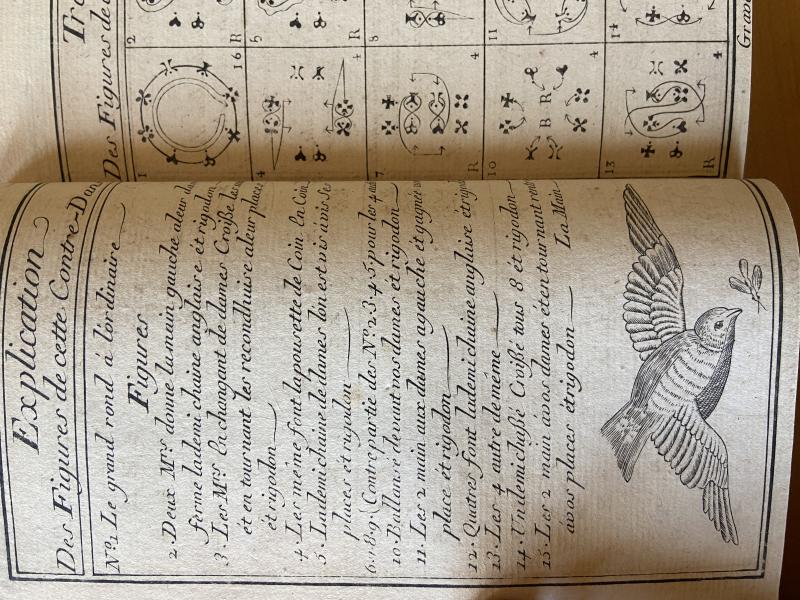 Explication
Des Figures de cette Contre-Dan
N.º 1. Le grand rond à lordinaire
Figures
2. Deux M.rs donne la main gauche aleur da
ferme la demi chaine anglaise et rigodon
3. Les M.rs En changant de dames Croisse les m
et en tournant les recondhuise aleur places
et rigodon
4. Les même font la pousette de Coin En Coin
5. La demi chaine de dames lon est vis avis Se
places et rigodon
6. 7. 8. 9. Contre partie des N.º 2. 3. 4. 5. pour les 4
10. Ballance devant nos dames et rigodon
11. Les 2 main aux dames agauche et gagner
place et rigodon
12. Quatres font la demi chaine anglaise et rigo
13. Les 4 autre de même
14. Un demi chassé Croisé tous 8 et rigodon
15. Les 2 main avos dames et en tournant
La Main
avos places et rigodon
Tro
Des Figures de
1
16 R
2
R
4
4
5
R
7
4
8
10
B R
4
11
13
R
4
14
Grav